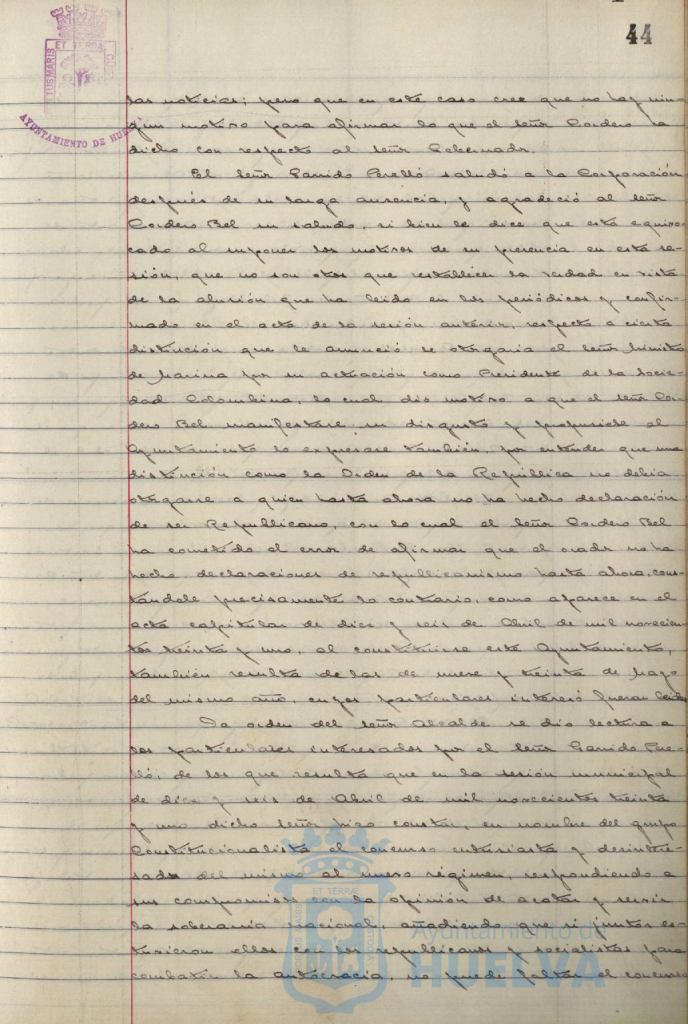 44
ET TERRAE
AYUNTAMIENTO DE HUE
las noticias; pero que en este caso cree que no hay nin-
gun motivo para afirmar lo que el Señor Cordero ha
dicho con respecto al Señor Gobernador.
El Señor Garrido Perelló saludó a la Corporación
después de su larga ausencia, y agradeció al Señor
Cordero Bel su saludo, si bien le dice que está equivo-
cado al suponer los motivos de su presencia en esta se-
sión, que no son otros que restablecer la verdad en vista
de la alusión que ha leido en los periódicos y confir-
mado en el acta de la sesión anterior, respecto a cierta
distinción que le anunció se otorgaria el Señor Ministro
de Marina por su actuación como Presidente de la Socie-
dad Colombina, lo cual dio motivo a que el Señor Cor-
dero Bel manifestase su disgusto y propusiese al
Ayuntamiento lo expresase también, por entender que una
distinción como la Orden de la República no debia
otorgarse a quien hasta ahora no ha hecho declaración
de ser Republicano, con lo cual el Señor Cordero Bel
ha cometido el error de afirmar que el orador no ha
hecho declaraciones de republicanismo hasta ahora, cons-
tándole precisamente lo contrario, como aparece en el
acta capitular de diez y seis de Abril de mil novecien-
tos treinta y uno, al constituirse este Ayuntamiento,
también resulta de las de nueve y treinta de Mayo
del mismo año, cuyos particulares interesó fueran leidos
De orden del Señor Alcalde se dio lectura a
los particulares interesados por el Señor Garrido Pere-
lló, de los que resulta que en la sesión municipal
de diez y seis de Abril de mil novecientos treinta
y uno dicho Señor hizo constar, en nombre del grupo
Constitucionalista el concurso entusiasta y desintere-
sado del mismo al nuevo régimen, respondiendo a
sus compromisos con la opinión de acatar y servir
la soberania nacional, añadiendo que si juntos es-
tuvieron ellos con los republicanos y socialistas para
combatir la autocracia, no puede faltar el concurso
Ayuntamiento de
HUELVA